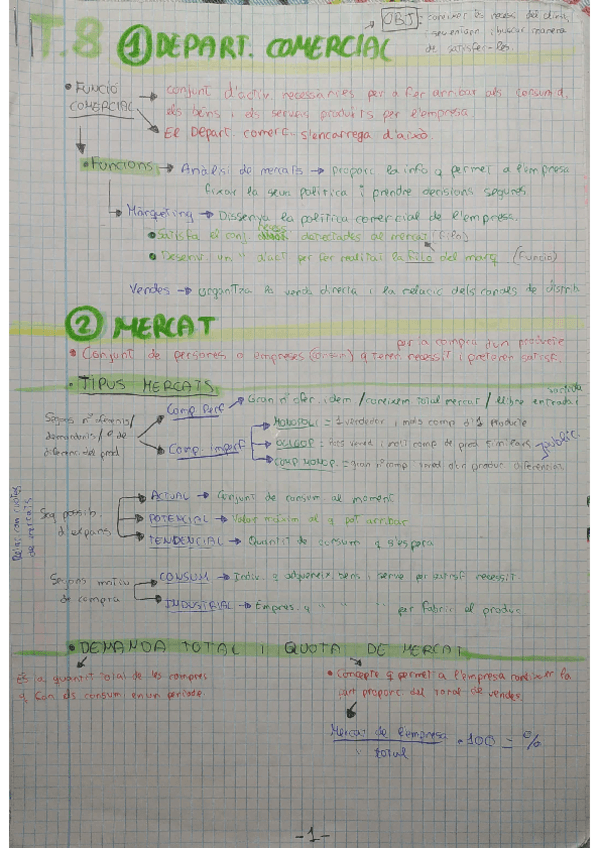 T.8 ① DEPART. COMERCIAL
OBJ: conèixer les necess. dels clients,
i buscar manera
de satisfer-les.
• FUNCIÓ COMERCIAL → Conjunt d'activ. necessàries per a fer arribar als consumid.
els béns i els serveis produïts per l'empresa
→ El Depart. comerc. s'encarrega d'això.
• Funcions → Anàlisi de mercats → proporc. la info q permet a l'empresa
fixar la seua política i prendre decisions segures
→ Màrqueting → Dissenya la política comercial de l'empresa.
• Satisfà el conj. necess. detectades al mercat (Filo)
• Desenv. un " d'act per fer realitat la Filo del marq (Funció)
Vendes → organitza la venda directa i la relació dels canals de distrib.
② MERCAT
• Conjunt de persones o empreses (consum) q tenen necessit i prefèren satisf.
per la compra d'un producte
• TIPUS MERCATS
Segons nº
demandants/
diferenc. del prod
Comp. Perf → Gran nº ofer. i dem / coneixem total mercat / lliure entrada i
sortida
Comp. imperf → MONOPOLI = 1 venedor i molts comp d'1 producte
→ OLIGOP. = pocs vened. i molts comp de prod similars
→ COMP MONOP. = gran nº comp i vned d'un produc diferenciat
public.
Seg possib.
d'expans
→ ACTUAL → Conjunt de consum al moment
→ POTENCIAL → Valor màxim al q pot arribar
→ TENDENCIAL → Quantit de consum q s'espera
de mercats
Segons motiu
de compra
→ CONSUM → Indiv. q adquireix béns i serveis per satisf necessit
→ INDUSTRIAL → Empres. q " " " per fabric el produc
• DEMANDA TOTAL I QUOTA DE MERCAT
És la quantit total de les compres
q fan els consum en un període
• Concepte q permet a l'empresa conèixer la
proporc del total de vendes
Mercat de l'empresa / " total • 100 = %
-1-